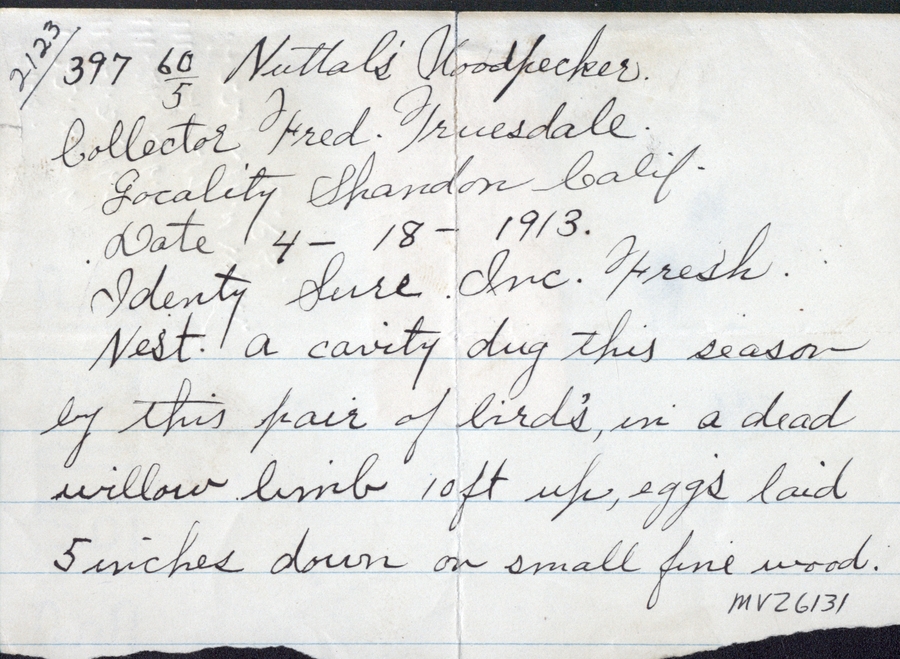 2123/
397 60/5 Nuttal's Woodpecker.
Collector Fred. Truesdale.
Locality Shandon Calif.
Date 4 - 18 - 1913.
Identy Sure. Inc. Fresh.
Nest. a cavity dug this season
by this pair of bird's, in a dead
willow limb 10ft up, egg's laid
5 inches down on small fine wood.
MVZ6131